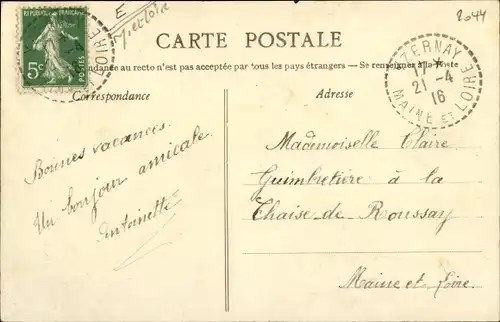 2044
E
M et Loire
RÉPUBLIQUE FRANÇAISE
5c
POSTES
LOIRE
CARTE POSTALE
Correspondance au recto n'est pas acceptée par tous les pays étrangers — Se renseigner à la Poste
Correspondance
Adresse
ZERNAY
17 *
21 -4
16
MAINE ET LOIRE
Bonnes vacances.
Un bonjour amicale.
Antoinette
Mademoiselle Claire
Guimbretière à la
Chaise-de Roussay
Maine et Loire